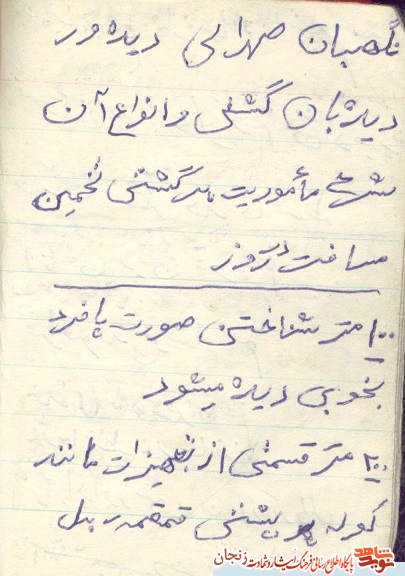 نگهبان صحرایی دیده‌ور
دیدبان گشتی و انواع آن
شرح مأموریت هر گشتی تخمین
مسافت در روز
۱۰۰ متر شناختن صورت یا فرد
بخوبی دیده میشود
۲۰۰ متر قسمتی از تجهیزات مانند
کوله پشتی قمقمه بیل
پایگاه اطلاع رسانی فرهنگ ایثار و شهادت زنجان
نوید شاهد